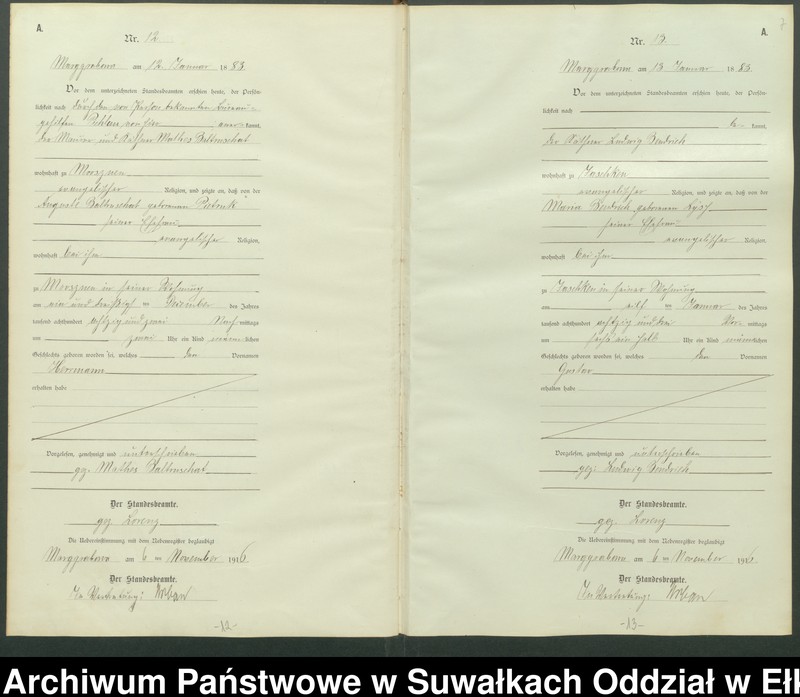 A.
Nr. 12
Marggrabowa am 12. Januar 1883.
Vor dem unterzeichneten Standesbeamten erschien heute, der Persön-
lichkeit nach durch den von Person bekannten
kannt,
der Maurer und Käthner Mathes Baltenschat
wohnhaft zu
evangelischer Religion, und zeigte an, daß von der
Auguste Baltenschat geborenen
seiner Ehefrau
evangelischer Religion,
wohnhaft bei ihm
zu in seiner Wohnung
am ein und dreißigst en Dezember des Jahres
tausend achthundert achtzig und zwei Nach mittags
um zwei Uhr ein Kind männlichen
Geschlechts geboren worden sei, welches den Vornamen
Herrmann
erhalten habe
Vorgelesen, genehmigt und unterschrieben
gez. Mathes Baltenschat
Der Standesbeamte.
gez. Lorenz
Die Uebereinstimmung mit dem Nebenregister beglaubigt
Marggrabowa am 6 en November 1916.
Der Standesbeamte.
In Vertretung: Urban
-12-
A.
7
Nr. 13.
Marggrabowa am 13 Januar 1883.
Vor dem unterzeichneten Standesbeamten erschien heute, der Persön-
lichkeit nach
be kannt,
der Käthner Ludwig Bendrich
wohnhaft zu Jaschken
evangelischer Religion, und zeigte an, daß von der
Maria Bendrich geborenen
seiner Ehefrau
evangelischer Religion,
wohnhaft bei ihm
zu Jaschken in seiner Wohnung
am elf en Januar des Jahres
tausend achthundert achtzig und drei Vor mittags
um sechs ein halb Uhr ein Kind männlichen
Geschlechts geboren worden sei, welches den Vornamen
Gustav
erhalten habe
Vorgelesen, genehmigt und unterschrieben
gez: Ludwig Bendrich
Der Standesbeamte.
gez. Lorenz
Die Uebereinstimmung mit dem Nebenregister beglaubigt
Marggrabowa am 6 en November 1916.
Der Standesbeamte.
In Vertretung: Urban
-13-
Archiwum Państwowe w Suwałkach Oddział w Eł